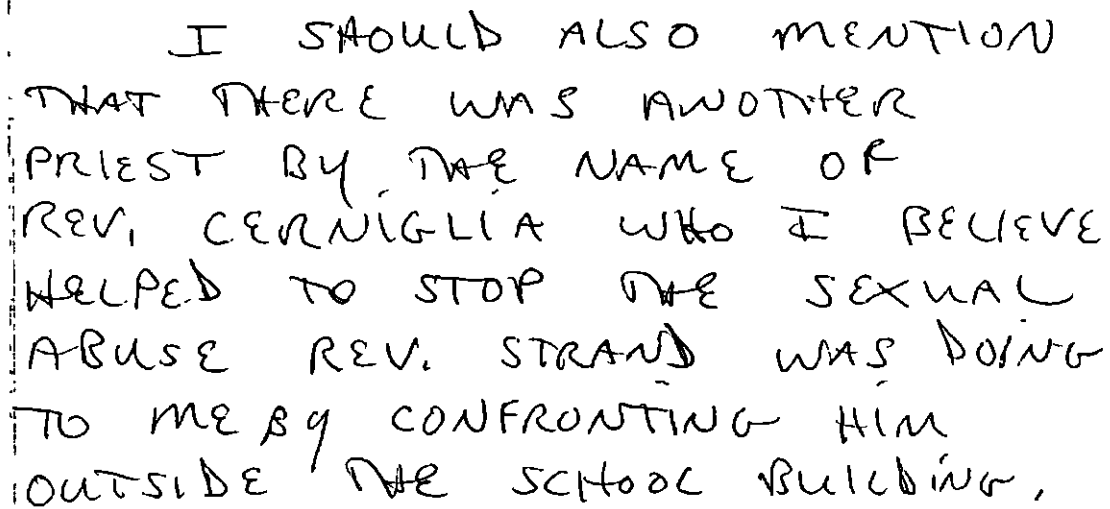 I SHOULD ALSO MENTION
THAT THERE WAS ANOTHER
PRIEST BY THE NAME OF
REV. CERNIGLIA WHO I BELIEVE
HELPED TO STOP THE SEXUAL
ABUSE REV. STRAND WAS DOING
TO ME BY CONFRONTING HIM
OUTSIDE THE SCHOOL BUILDING.